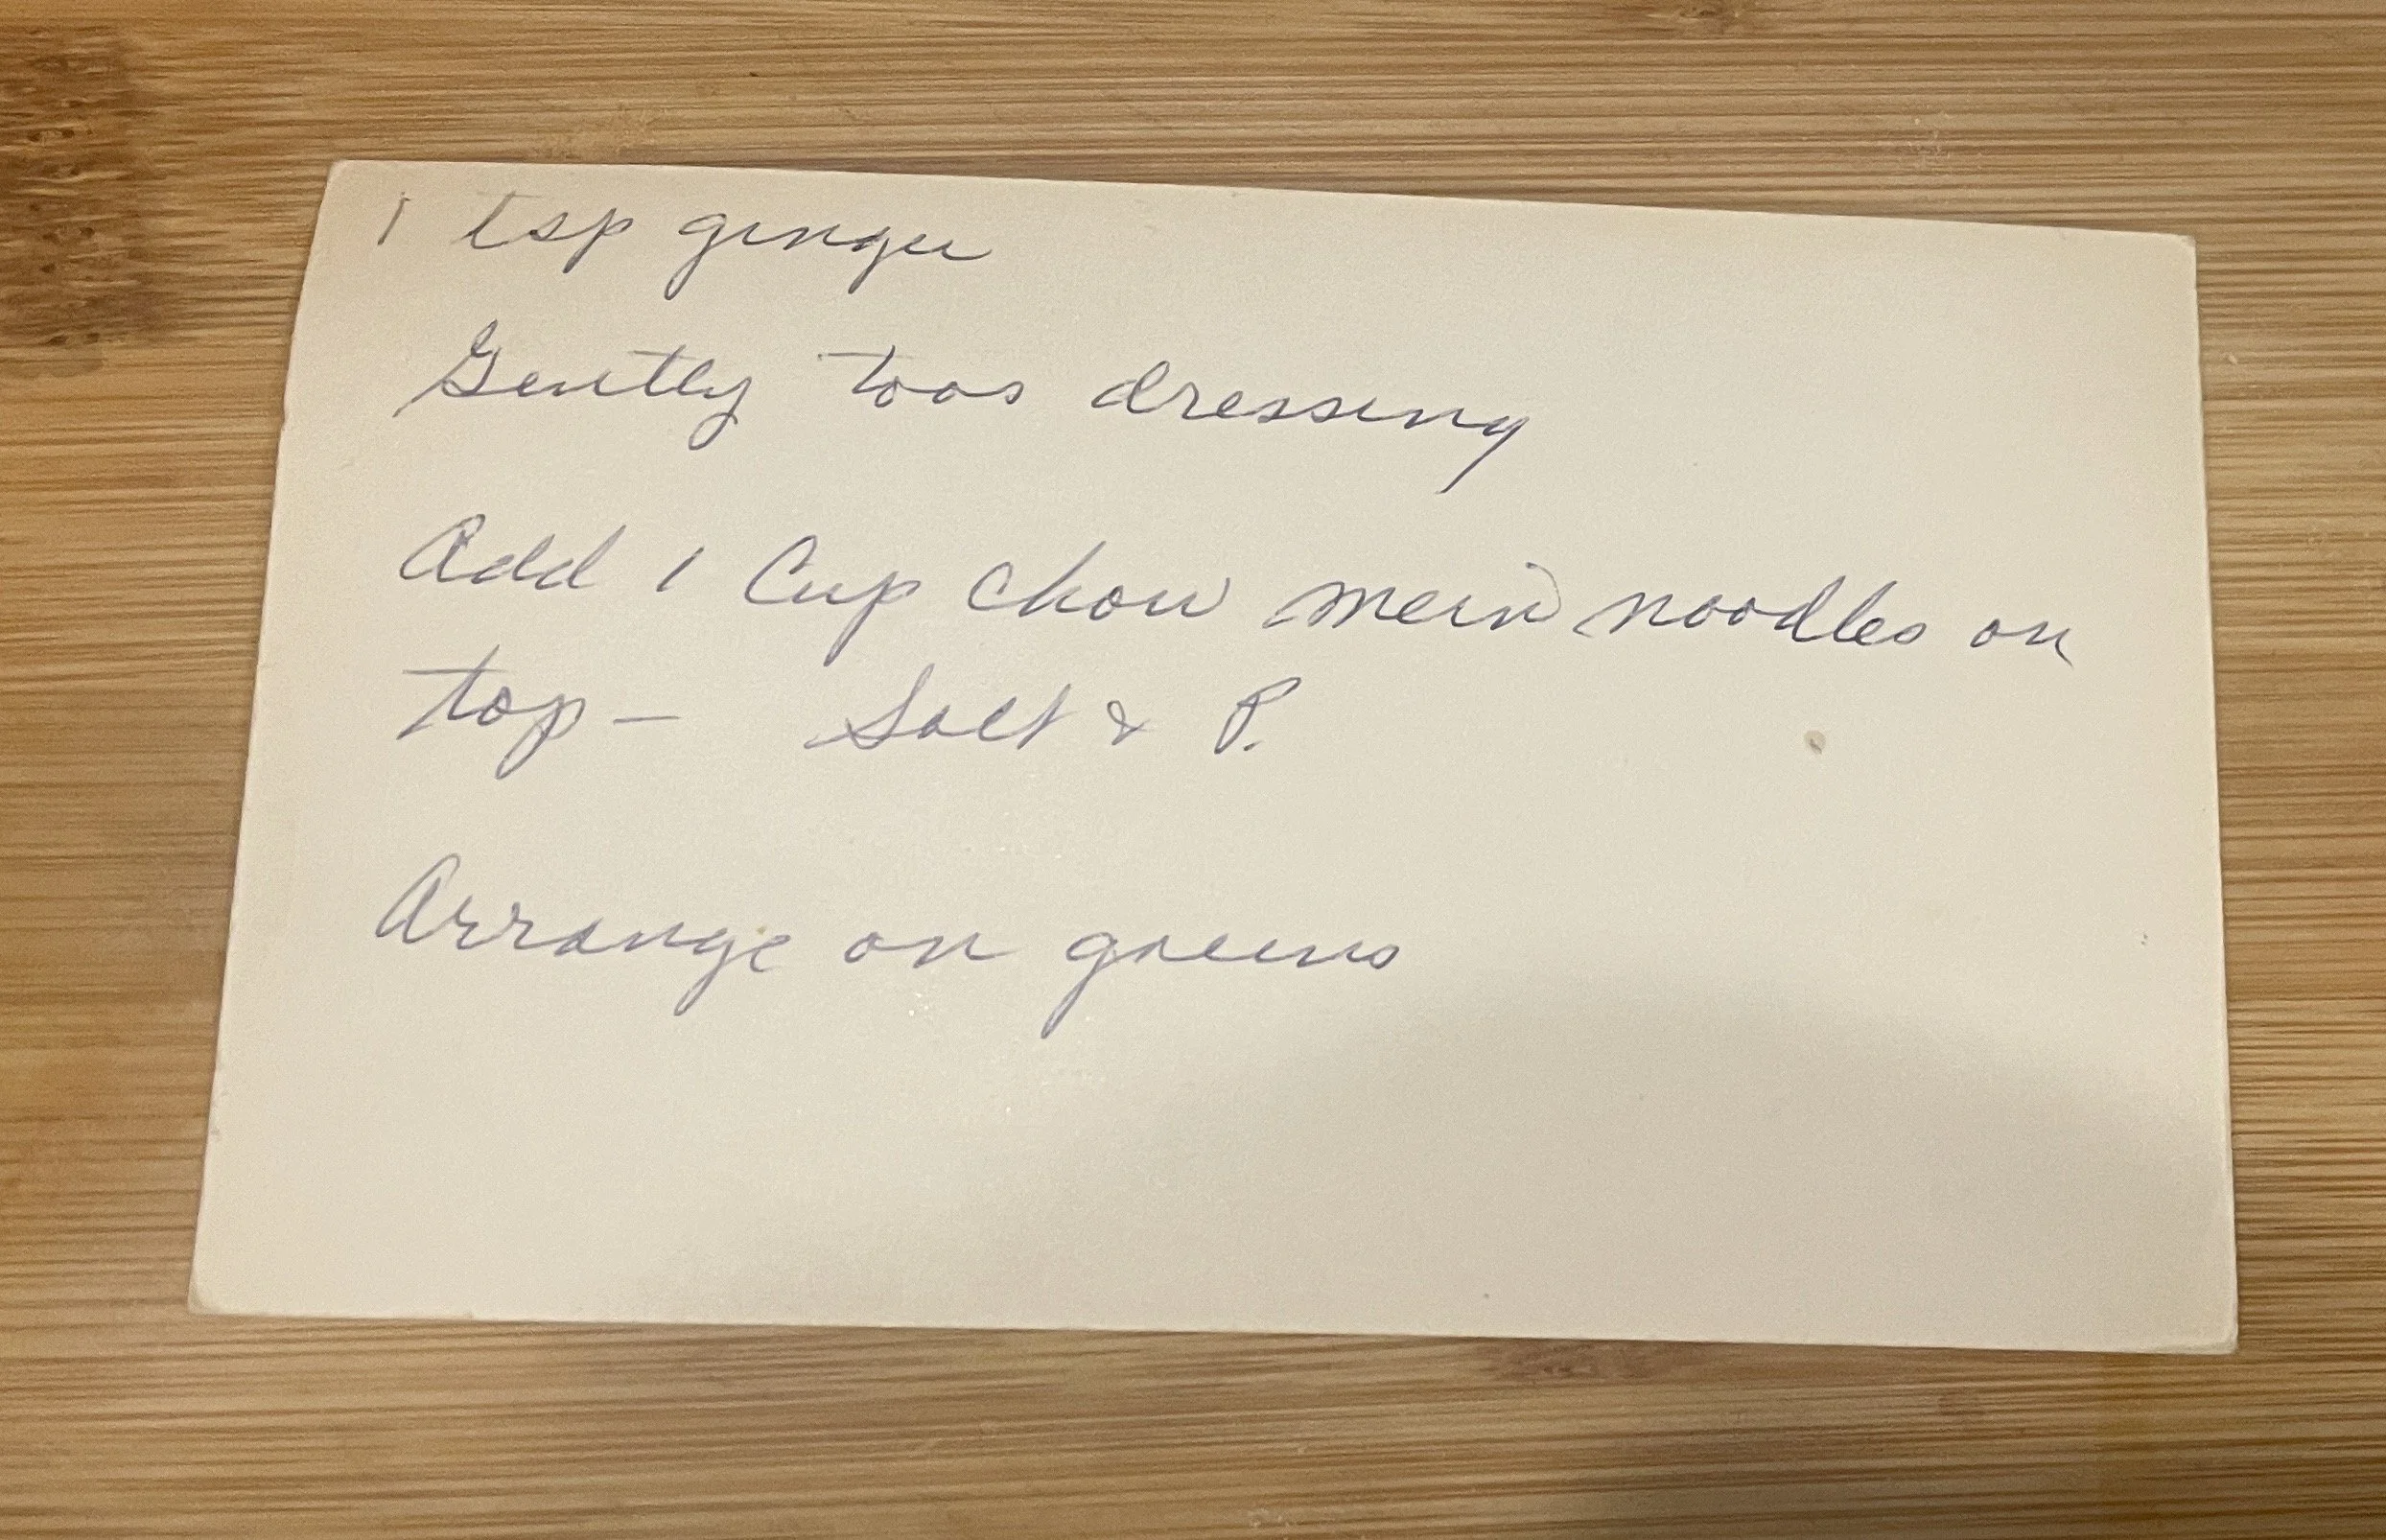 1 tsp ginger
Gently toss dressing
Add 1 Cup Chow mein noodles on
top - Salt & P.
Arrange on greens